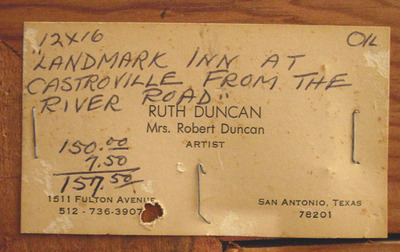 12x16 OIL
"LANDMARK INN AT
CASTROVILLE FROM THE
RIVER ROAD"
RUTH DUNCAN
Mrs. Robert Duncan
ARTIST
150.00
7.50
157.50
1511 FULTON AVENUE SAN ANTONIO, TEXAS
512 - 736-3907 78201